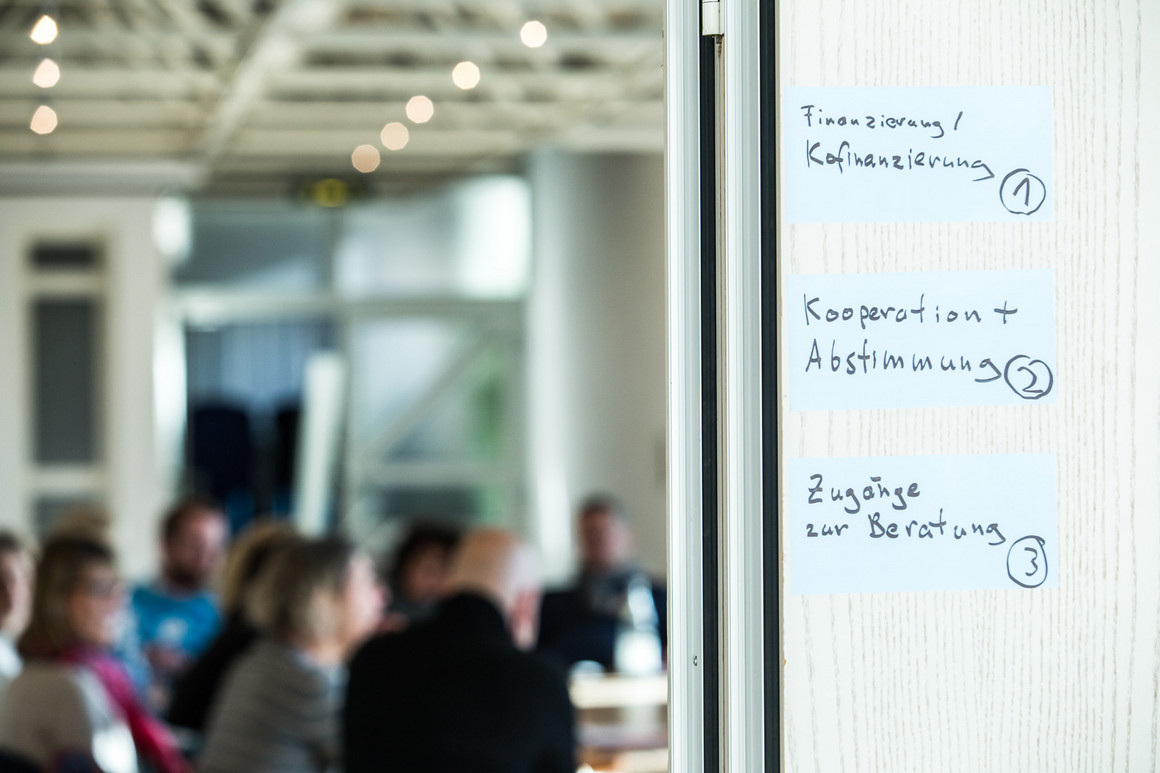 Finanzierung /
Kofinanzierung 1
Kooperation +
Abstimmung 2
Zugänge
zur Beratung 3